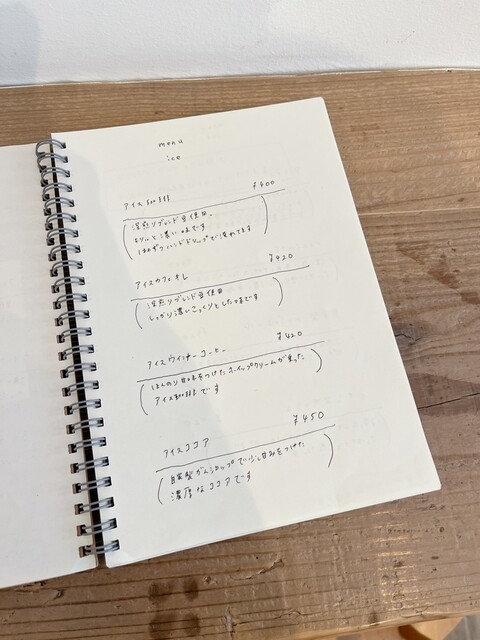 menu
ice
アイス珈琲 ¥400
深煎りブレンド豆使用。
とっても濃い味です
1杯ずつハンドドリップで淹れてます
アイスカフェオレ ¥420
深煎りブレンド豆使用
しっかり濃いこっくりとした味です
アイスウインナーコーヒー ¥420
ほんのり甘味をつけたホイップクリームが乗った
アイス珈琲です
アイスココア ¥450
自家製がんシロップで少し甘みをつけた
濃厚なココアです